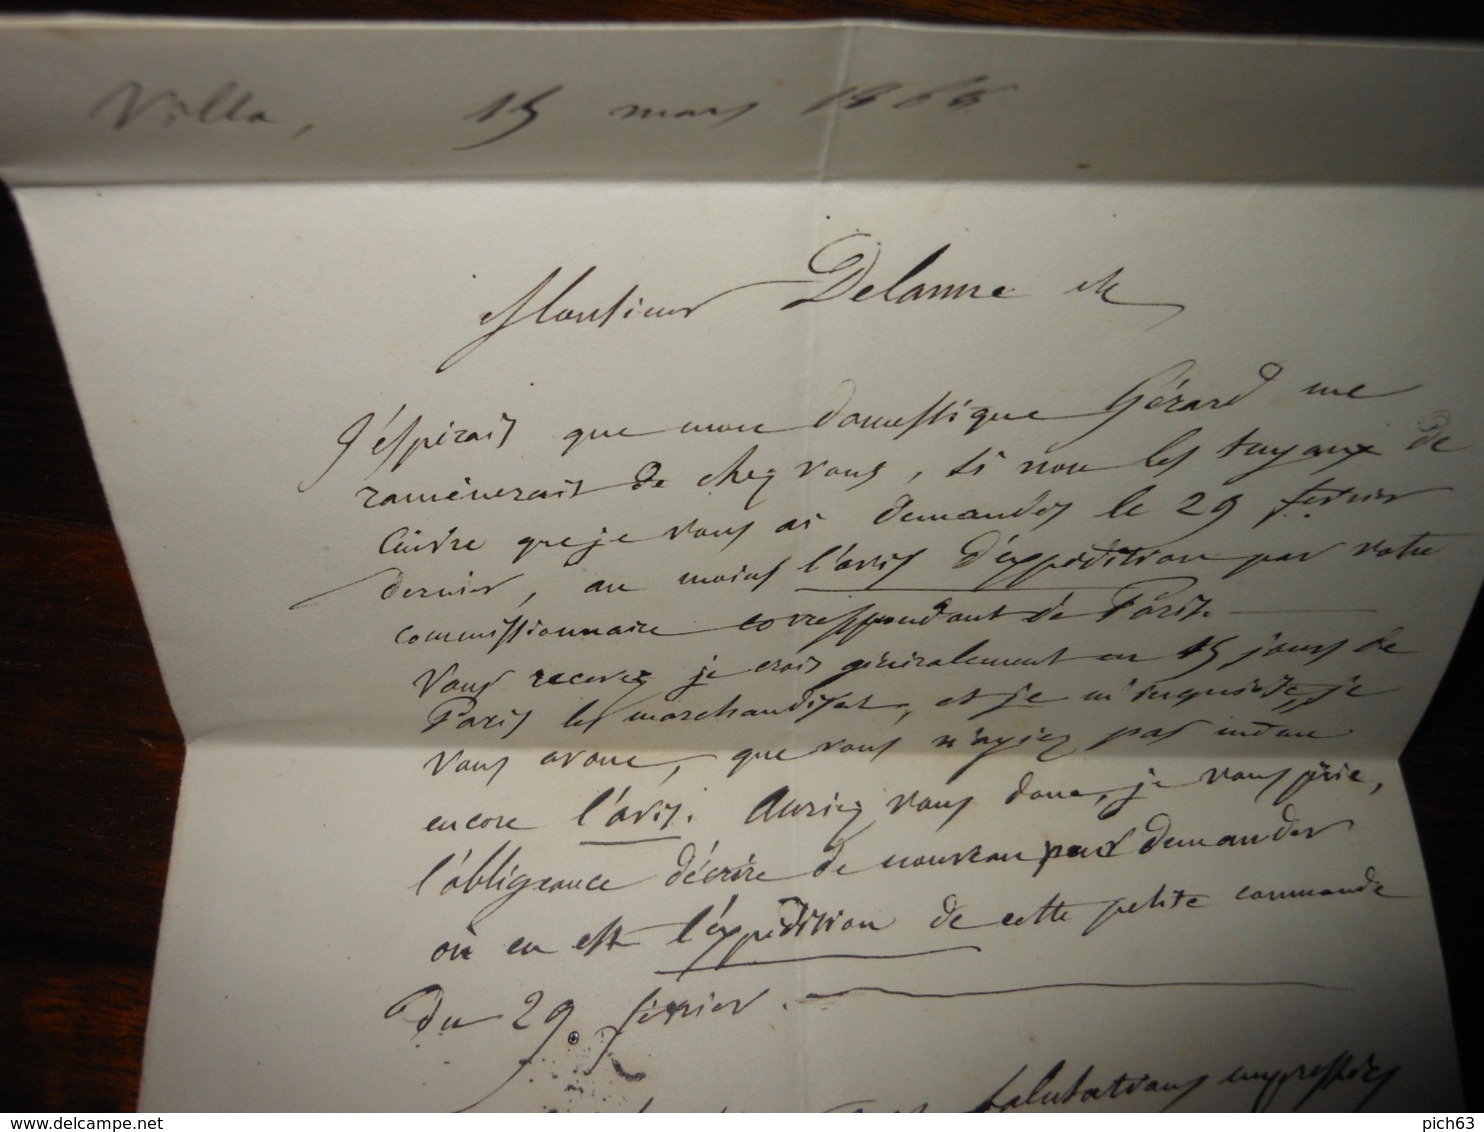 Villa, 15 mars 1868
Monsieur Delanne
J'espérais que mon domestique Gérard me
ramènerait de chez vous, si non les tuyaux de
cuivre que je vous ai demandés le 29 février
dernier, au moins l'avis d'expédition par votre
commissionnaire correspondant de Paris.
Vous recevez je crois généralement en 15 jours de
Paris les marchandises, et je m'inquiète, je
vous avoue, que vous n'ayiez pas même
encore l'avis. Auriez vous donc, je vous prie,
l'obligeance d'écrire de nouveau pour demander
où en est l'expédition de cette petite commande
du 29 février.
Salutations empressées
delcampe.net
pich63